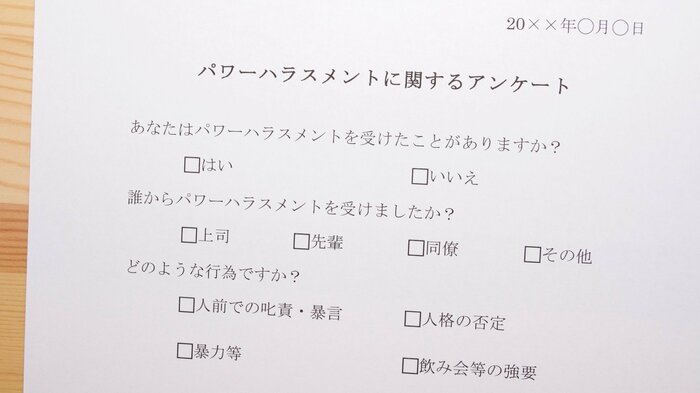 20××年〇月〇日
パワーハラスメントに関するアンケート
あなたはパワーハラスメントを受けたことがありますか？
□はい □いいえ
誰からパワーハラスメントを受けましたか？
□上司 □先輩 □同僚 □その他
どのような行為ですか？
□人前での叱責・暴言 □人格の否定
□暴力等 □飲み会等の強要